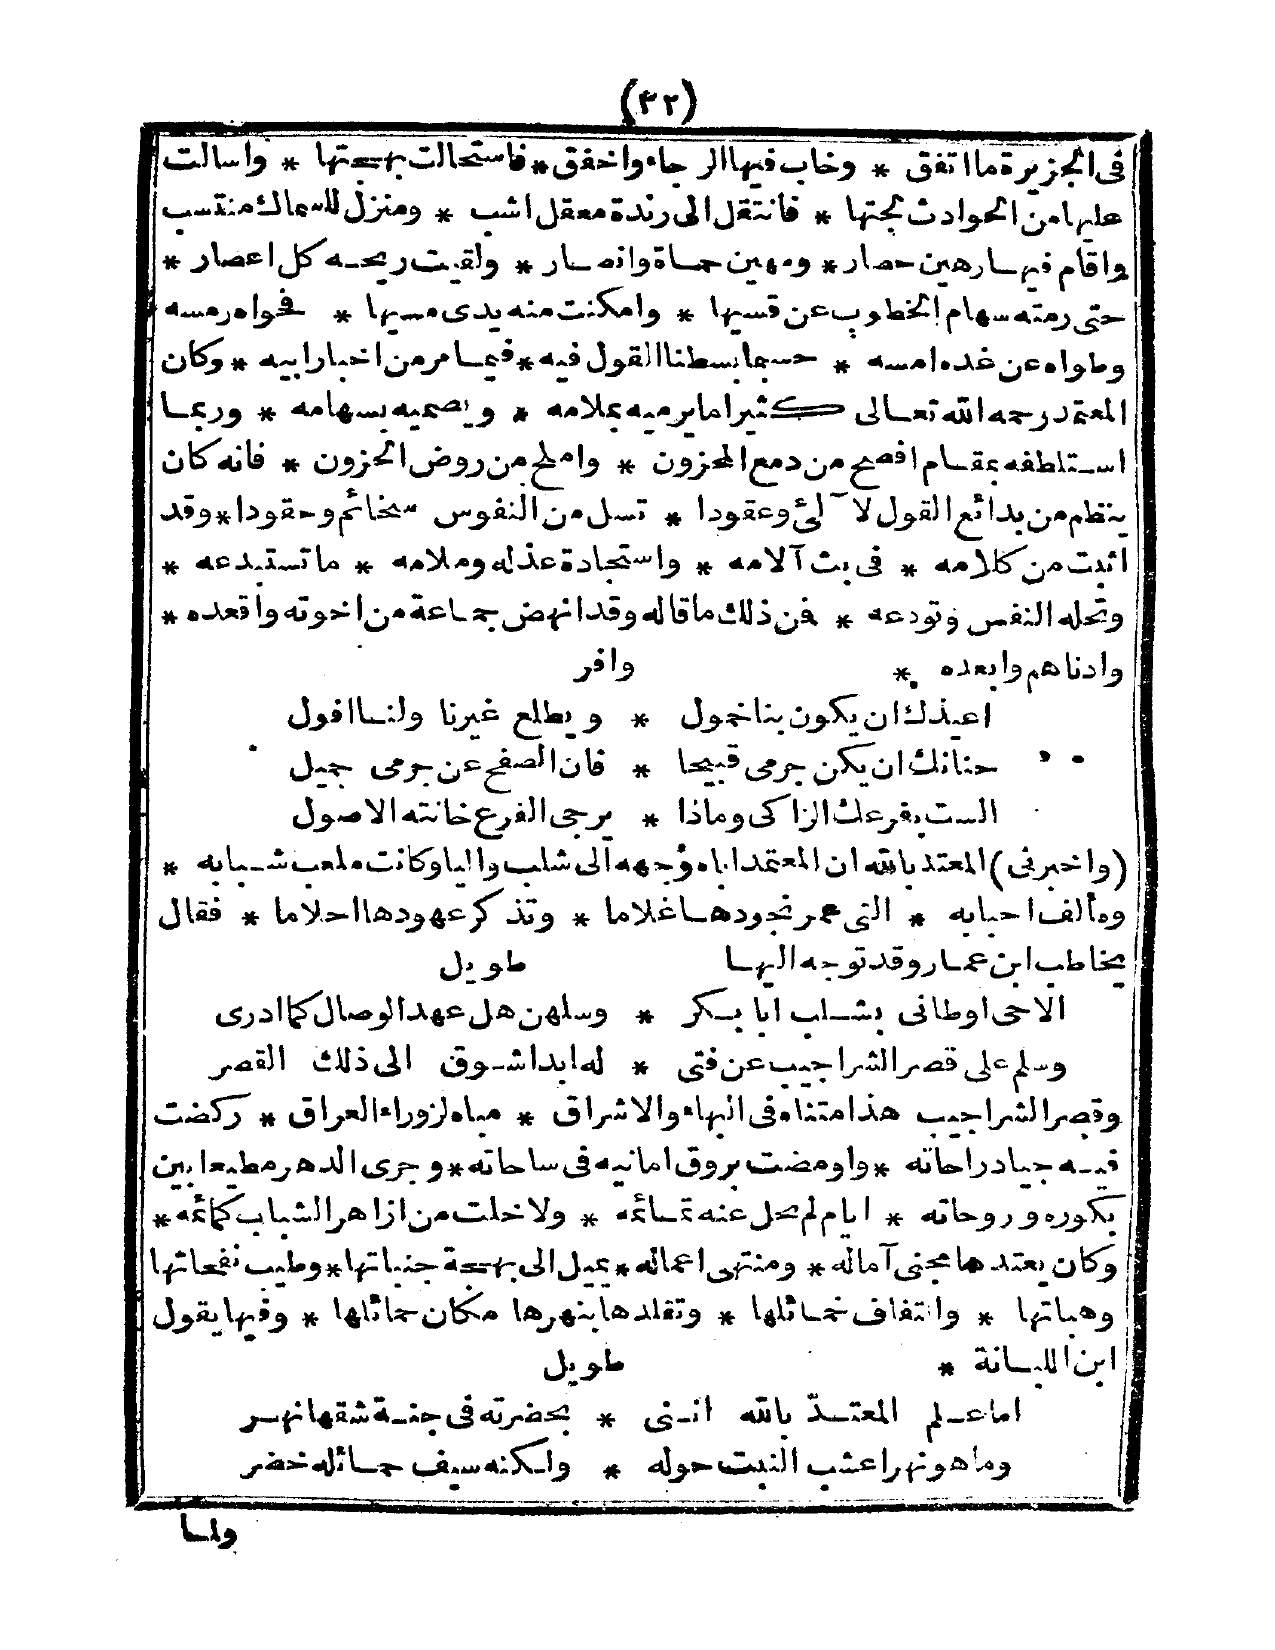 (٣٢)
فى الجزيرة ما اتفق * وخاب فيها الرجاء واخفق * فاستحالت بهجتها * واسالت
عليها من الحوادث لجتها * فانتقل الى رندة معقل اشب * ومنزل للسماك منتسب
واقام فيها رهين حصار * ومهين حماة وانصار * ولقيت ريحه كل اعصار *
حتى رمته سهام الخطوب عن قسيها * وامكنت منه يدى مسيها * فحواه رمسه
وطواه عن غده امسه * حسبما بسطنا القول فيه * فيما مر من اخبار ابيه * وكان
المعتمد رحمه الله تعالى كثيرا ما يرميه بملامه * ويصميه بسهامه * وربما
استلطفه بمقام افصح من دمع المحزون * واملح من روض الحزون * فانه كان
ينظم من بدائع القول لآلئ وعقودا * تسل من النفوس سخائم وحقودا * وقد
اثبت من كلامه * فى بث آلامه * واستجادة عذله وملامه * ما تستبدعه *
وتحله النفس وتودعه * فمن ذلك ما قاله وقد انهض جماعة من اخوته واقعده *
وادناهم وابعده * وافر
اعيذك ان يكون بنا خمول * ويطلع غيرنا ولنا افول
حنانك ان يكن جرمى قبيحا * فان الصفح عن جرمى جميل
الست بفرعك الزاكى وماذا * يرجى الفرع خانته الاصول
(واخبرنى) المعتد بالله ان المعتمد اباه وجهه الى شلب واليا وكانت ملعب شبابه *
ومألف احبابه * التى عمر نجودها غلاما * وتذكر عهودها احلاما * فقال
يخاطب ابن عمار وقد توجه اليها طويل
الاحى اوطانى بشلب ابا بكر * وسلهن هل عهد الوصال كما ادرى
وسلم على قصر الشراجيب عن فتى * له ابدا شوق الى ذلك القصر
وقصر الشراجيب هذا متناه فى البهاء والاشراق * مباه لزوراء العراق * ركضت
فيه جياد راحاته * واومضت بروق امانيه فى ساحاته * وجرى الدهر مطيعا بين
بكوره وروحاته * ايام لم تحل عنه تمائمه * ولا خلت من ازاهر الشباب كمائمه *
وكان يعتدها مجنى آماله * ومنتهى اعماله * يميل الى بهجة جنباتها * وطيب نفحاتها
وهباتها * والتفاف خمائلها * وتقلدها بنهرها مكان حمائلها * وفيها يقول
ابن اللبانة * طويل
اما علم المعتدّ بالله اننى * بحضرته فى جنة شقها نهر
وما هو نهر اعشب النبت حوله * ولكنه سيف حمائله خضر
ولما